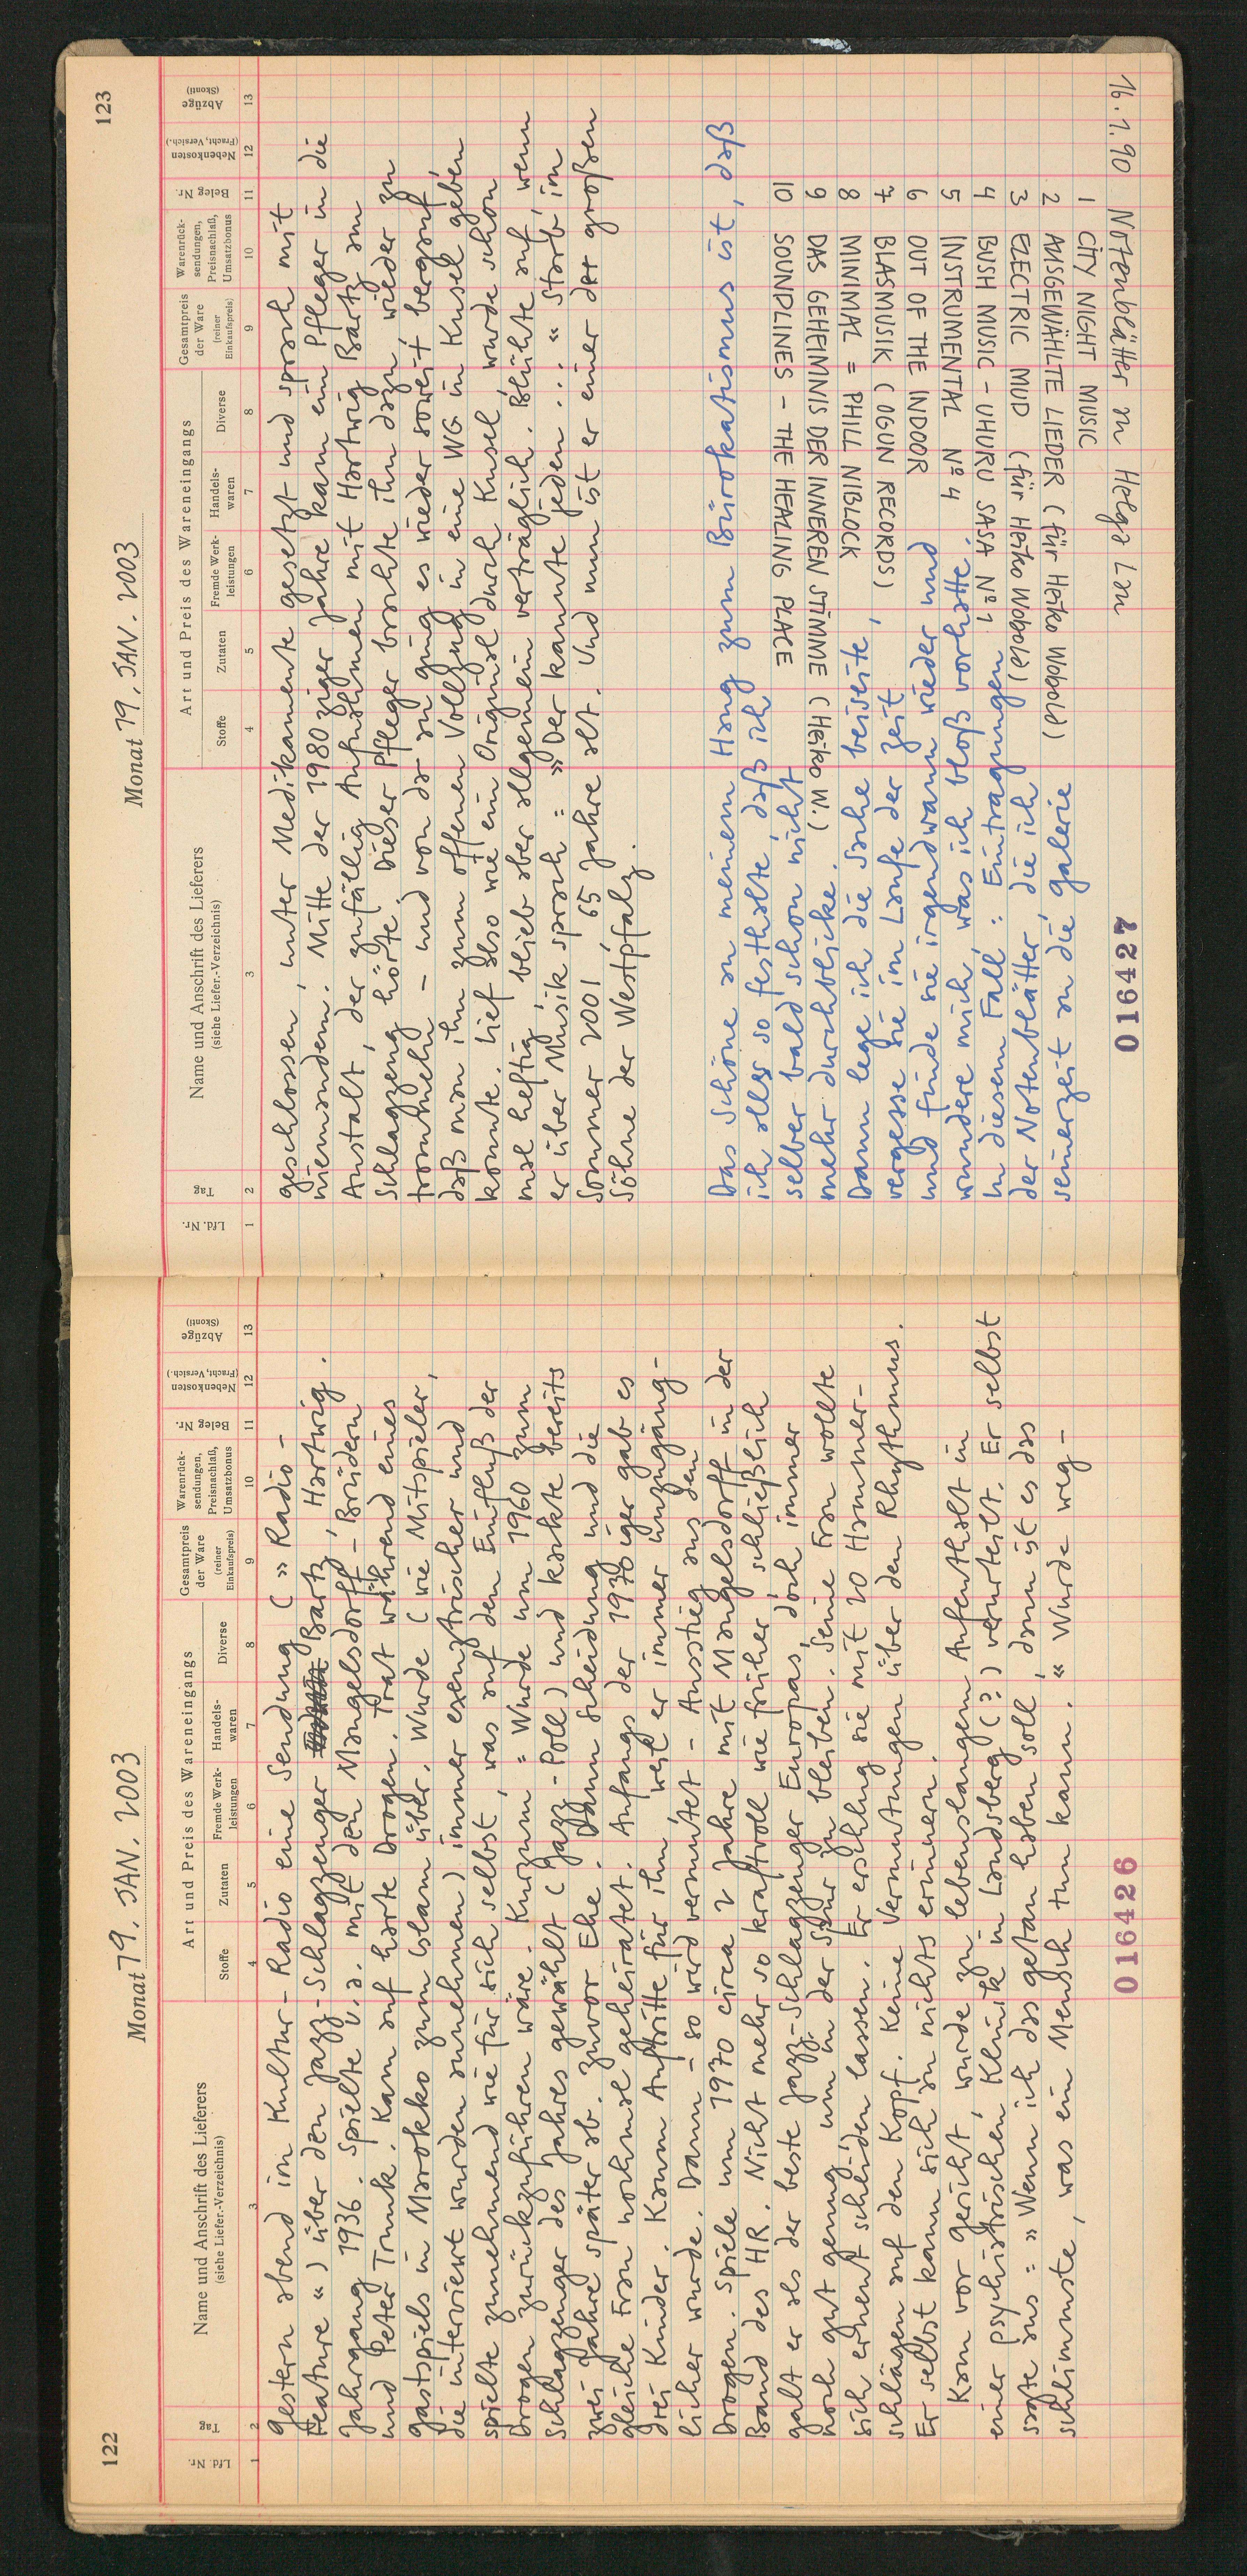 122
Monat 19. JAN. 2003
Lfd. Nr.
Tag
Name und Anschrift des Lieferers
(siehe Liefer.-Verzeichnis)
Art und Preis des Wareneingangs
Stoffe
Zutaten
Fremde Werk-
leistungen
Handels-
waren
Diverse
Gesamtpreis
der Ware
(reiner
Einkaufspreis)
Warenrück-
sendungen,
Preisnachlaß,
Umsatzbonus
Beleg Nr.
Nebenkosten
(Fracht, Versich.)
Abzüge
(Skonti)
1 2 3 4 5 6 7 8 9 10 11 12 13
Gestern abend im Kultur-Radio eine Sendung (»Radio-
Feature«) über den Jazz-Schlagzeuger Bartz, Hartwig.
Jahrgang 1936. Spielte u.a. mit den Mangelsdorff-Brüdern
und Peter Trunk. Kam auf harte Drogen. Trat während eines
Gastspiels in Marokko zum Islam über. Wurde (wie Mitspieler,
die interviewt wurden annehmen) immer exzentrischer und
spielte zunehmend wie für sich selbst, was auf den Einfluß der
Drogen zurückzuführen wäre. Kurzum: Wurde um 1960 zum
Schlagzeuger des Jahres gewählt (Jazz-Poll) und kackte bereits
zwei Jahre später ab. Zuvor Ehe. Dann Scheidung und die
gleiche Frau nochmal geheiratet. Anfangs der 1970iger gab es
drei Kinder. Kaum Auftritte für ihn, weil er immer unzugäng-
licher wurde. Dann – so wird vermutet – Ausstieg aus den
Drogen. Spiele um 1970 circa 2 Jahre mit Mangelsdorff in der
Band des HR. Nicht mehr so kraftvoll wie früher, schließlich
galt er als der beste Jazz-Schlagzeuger Europas, doch immer
noch gut genug, um in der Spur zu bleiben. Seine Frau wollte
sich erneut scheiden lassen. Er erschlug sie mit 20 Hammer-
schlägen auf den Kopf. Keine Vermutungen über den Rhythmus.
Er selbst kann sich an nichts erinnern.
Kam vor Gericht, wurde zu lebenslangem Aufenthalt in
einer psychiatrischen Klinik in Landsberg (?) verurteilt. Er selbst
sagte aus: »Wenn ich das getan haben soll, dann ist es das
schlimmste, was ein Mensch tun kann.« Wurde weg-
016426
123
Monat 19. JAN. 2003
Lfd. Nr.
Tag
Name und Anschrift des Lieferers
(siehe Liefer.-Verzeichnis)
Art und Preis des Wareneingangs
Stoffe
Zutaten
Fremde Werk-
leistungen
Handels-
waren
Diverse
Gesamtpreis
der Ware
(reiner
Einkaufspreis)
Warenrück-
sendungen,
Preisnachlaß,
Umsatzbonus
Beleg Nr.
Nebenkosten
(Fracht, Versich.)
Abzüge
(Skonti)
1 2 3 4 5 6 7 8 9 10 11 12 13
geschlossen, unter Medikamente gesetzt und sprach mit
niemandem. Mitte der 1980ziger Jahre kam ein Pfleger in die
Anstalt, der zufällig Aufnahmen mit Hartwig Bartz am
Schlagzeug hörte. Dieser Pfleger brachte ihn dazu, wieder zu
trommeln – und von da an ging es wieder soweit bergauf,
daß man ihn zum offenen Vollzug in eine WG in Kusel geben
konnte. Lief also wie ein Original durch Kusel, wurde schon
mal heftig, blieb aber allgemein verträglich. Blühte auf, wenn
er über Musik sprach: »Der kannte jeden...« Starb im
Sommer 2001, 65 Jahre alt. Und nun ist er einer der großen
Söhne der Westpfalz.
Das Schöne an meinem Hang zum Bürokatismus ist, daß
ich alles so festhalte, daß ich
selber bald schon nicht
mehr durchblicke.
Dann lege ich die Sache beiseite,
vergesse sie im Laufe der Zeit
und finde sie irgendwann wieder und
wundere mich, was ich bloß vorhatte.
In diesem Fall: Eintragungen
der Notenblätter, die ich
seinerzeit an die Galerie
16.1.90 Notenblätter an Helga Lau
1 CITY NIGHT MUSIC
2 AUSGEWÄHLTE LIEDER (für Heiko Wobold)
3 ELECTRIC MUD (für Heiko Wobold)
4 BUSH MUSIC – UHURU SASA Nº 1
5 INSTRUMENTAL Nº 4
6 OUT OF THE INDOOR
7 BLASMUSIK (OGUN RECORDS)
8 MINIMAL = PHILL NIBLOCK
9 DAS GEHEIMNIS DER INNEREN STIMME (Heiko W.)
10 SOUNDLINES – THE HEALING PLACE
016427